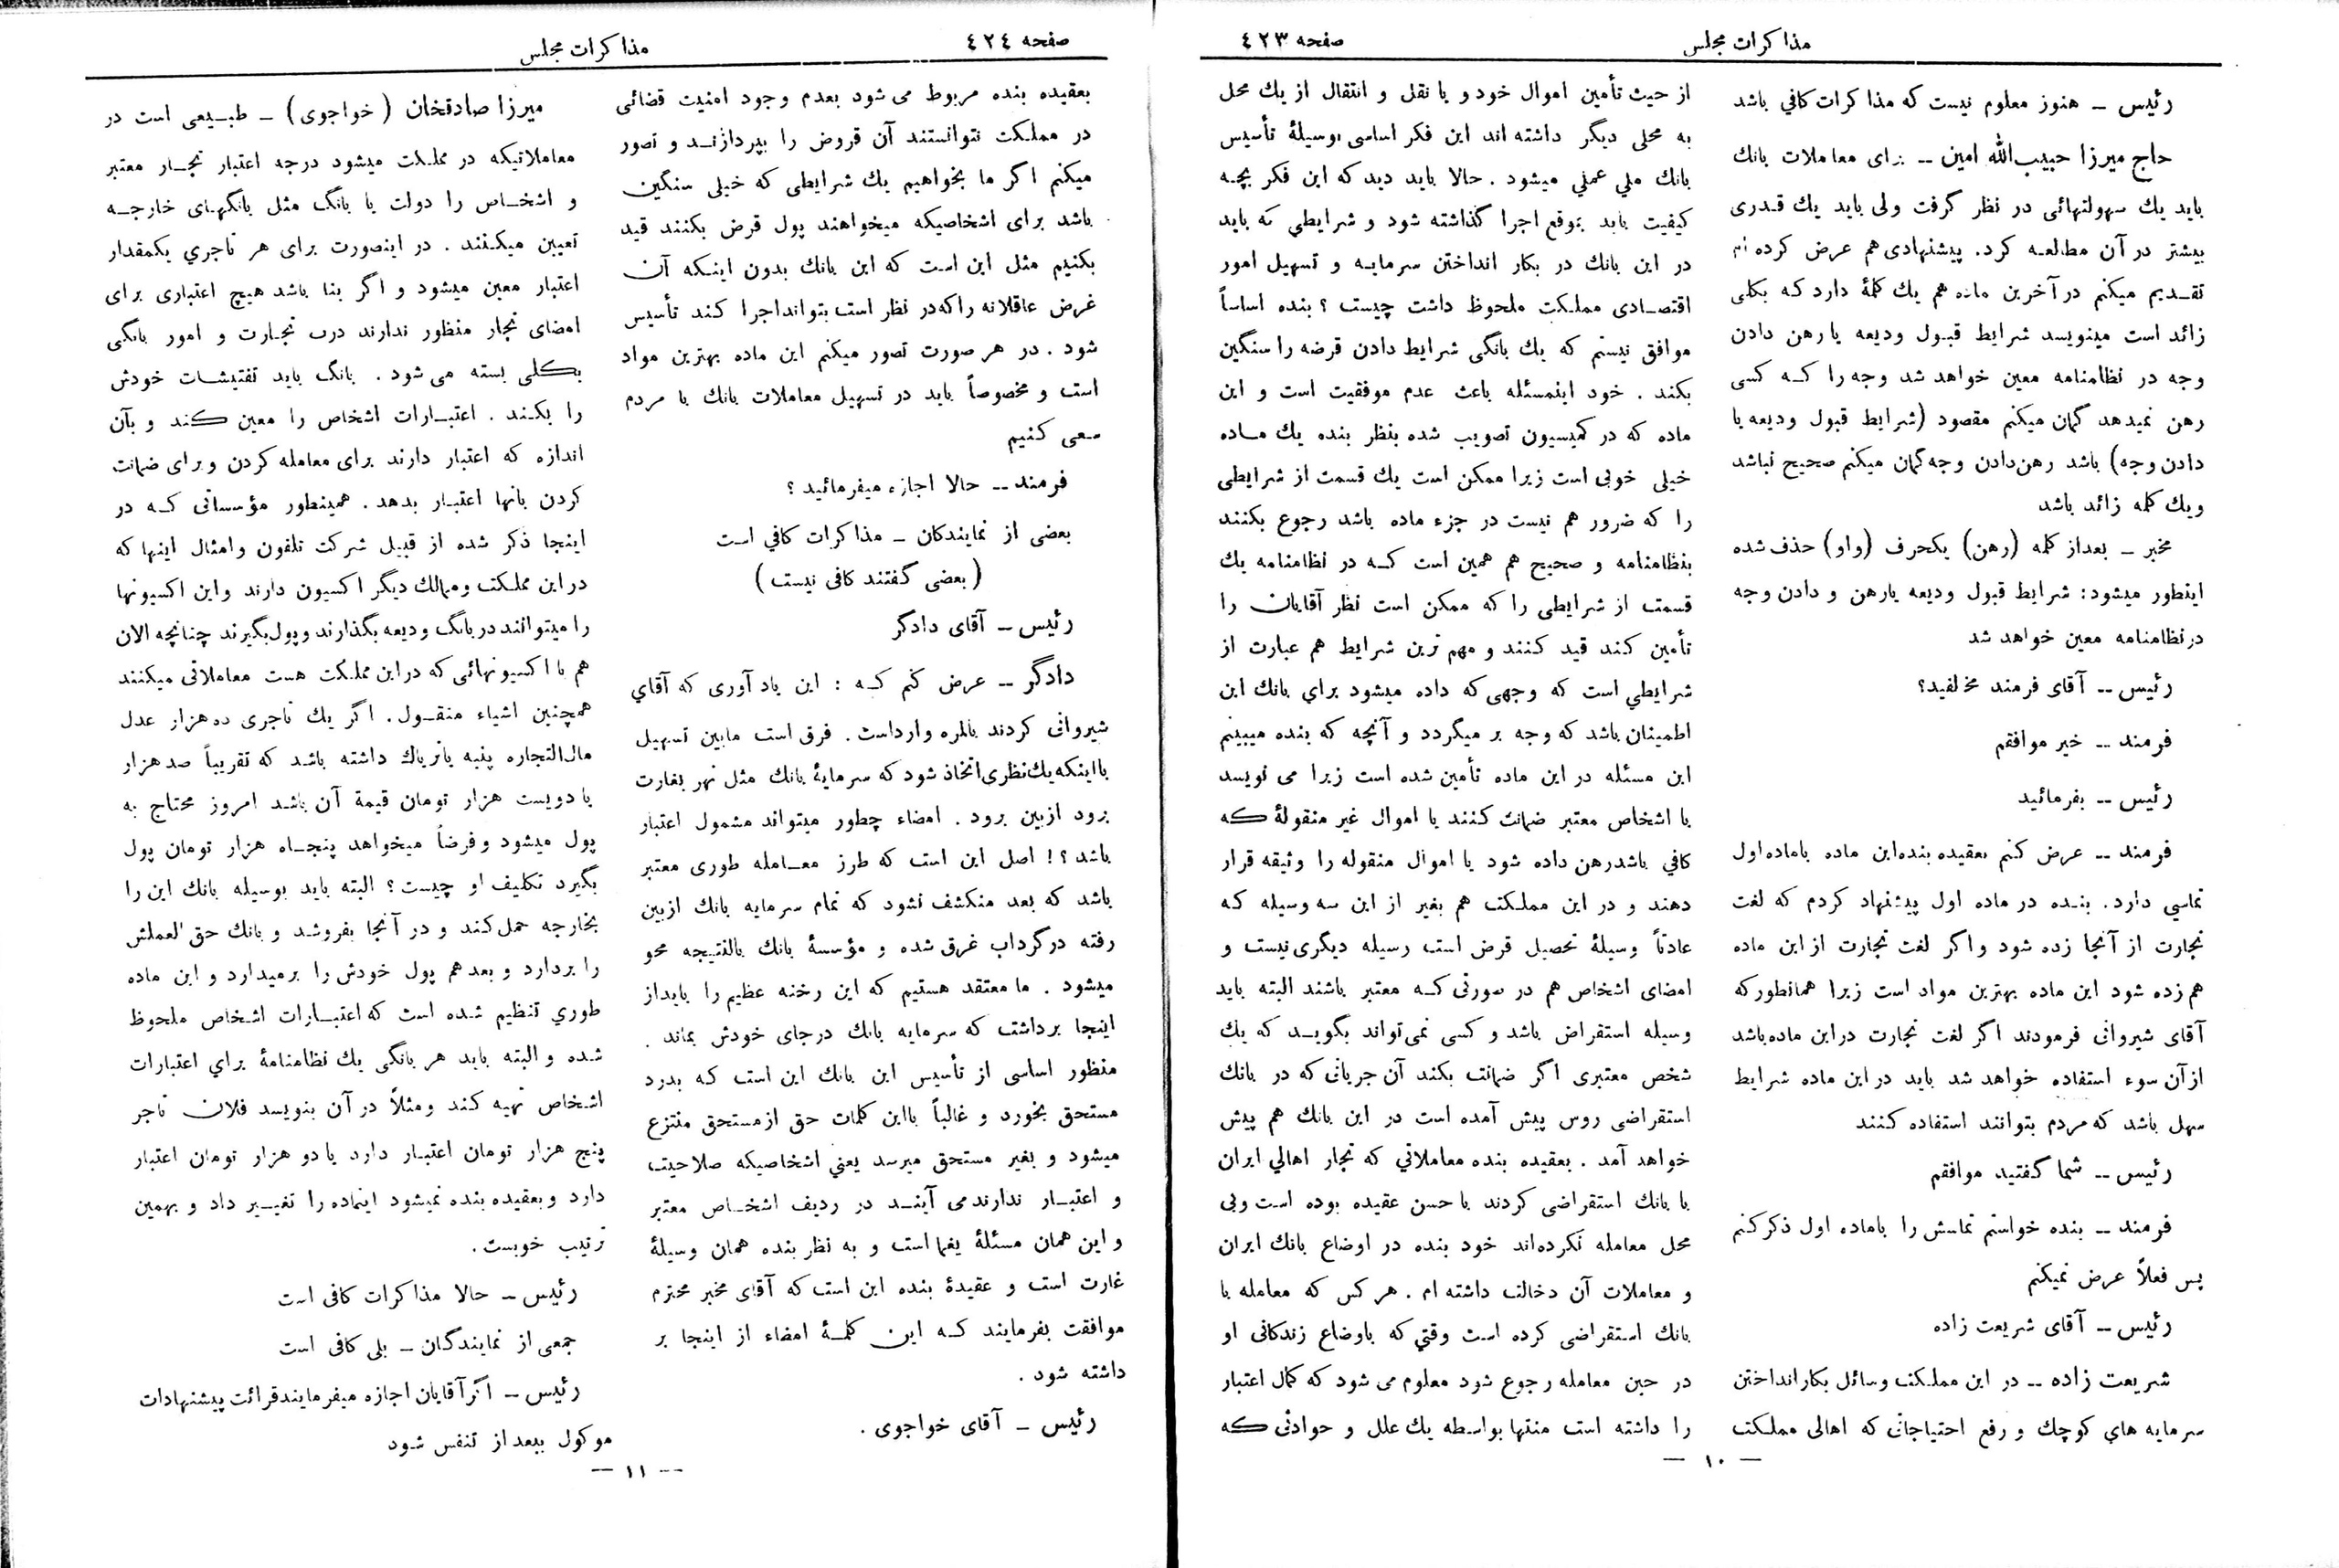 مذاكرات مجلس
صفحه ٤٢٣
رئيس – هنوز معلوم نيست كه مذاكرات كافي باشد
حاج ميرزا حبيب‌الله امين – براى معاملات بانك
بايد يك سهولتهائى در نظر گرفت ولى بايد يك قدرى
بيشتر در آن مطالعه كرد. پيشنهادى هم عرض كرده ام
تقديم ميكنم در آخرين ماده هم يك كلمهٔ دارد كه بكلى
زائد است مينويسد شرايط قبول وديعه يا رهن دادن
وجه در نظامنامه معين خواهد شد وجه را كه كسى
رهن نميدهد گمان ميكنم مقصود (شرايط قبول وديعه يا
دادن وجه) باشد رهن دادن وجه گمان ميكنم صحيح نباشد
و يك كلمه زائد باشد
مخبر – بعد از كلمه (رهن) يكحرف (واو) حذف شده
اينطور ميشود: شرايط قبول وديعه يا رهن و دادن وجه
در نظامنامه معين خواهد شد
رئيس – آقاى فرمند مخالفيد؟
فرمند – خير موافقم
رئيس – بفرمائيد
فرمند – عرض كنم بعقيده بنده اين ماده با ماده اول
تماسي دارد. بنده در ماده اول پيشنهاد كردم كه لغت
تجارت از آنجا زده شود و اگر لغت تجارت از اين ماده
هم زده شود اين ماده بهترين مواد است زيرا همانطور كه
آقاى شيروانى فرمودند اگر لغت تجارت در اين ماده باشد
از آن سوء استفاده خواهد شد بايد در اين ماده شرايط
سهل باشد كه مردم بتوانند استفاده كنند
رئيس – شما گفتيد موافقم
فرمند – بنده خواستم تماسش را با ماده اول ذكر كنم
پس فعلاً عرض نميكنم
رئيس – آقاى شريعت زاده
شريعت زاده – در اين مملكت وسائل بكار انداختن
سرمايه هاي كوچك و رفع احتياجاتى كه اهالى مملكت
از حيث تأمين اموال خود و يا نقل و انتقال از يك محل
به محلى ديگر داشته اند اين فكر اساسى بوسيلهٔ تأسيس
بانك ملي عملي ميشود. حالا بايد ديد كه اين فكر بچه
كيفيت بايد بموقع اجرا گذاشته شود و شرايطي كه بايد
در اين بانك در بكار انداختن سرمايه و تسهيل امور
اقتصادى مملكت ملحوظ داشت چيست؟ بنده اساساً
موافق نيستم كه يك بانكى شرايط دادن قرضه را سنگين
بكند. خود اينمسئله باعث عدم موفقيت است و اين
ماده كه در كميسيون تصويب شده بنظر بنده يك ماده
خيلى خوبى است زيرا ممكن است يك قسمت از شرايطى
را كه ضرور هم نيست در جزء ماده باشد رجوع بكنند
بنظامنامه و صحيح هم همين است كه در نظامنامه يك
قسمت از شرايطى را كه ممكن است نظر آقايان را
تأمين كند قيد كنند و مهم ترين شرايط هم عبارت از
شرايطي است كه وجهى كه داده ميشود براي بانك اين
اطمينان باشد كه وجه بر ميگردد و آنچه كه بنده ميبينم
اين مسئله در اين ماده تأمين شده است زيرا مى نويسد
با اشخاص معتبر ضمانت كنند يا اموال غير منقولهٔ كه
كافي باشد رهن داده شود يا اموال منقوله را وثيقه قرار
دهند و در اين مملكت هم بغير از اين سه وسيله كه
عادتاً وسيلهٔ تحصيل قرض است وسيله ديگرى نيست و
امضاى اشخاص هم در صورتى كه معتبر باشند البته بايد
وسيله استقراض باشد و كسى نمى تواند بگويد كه يك
شخص معتبرى اگر ضمانت بكند آن جريانى كه در بانك
استقراضى روس پيش آمده است در اين بانك هم پيش
خواهد آمد. بعقيده بنده معاملاتي كه تجار اهالي ايران
با بانك استقراضى كردند با حسن عقيده بوده است و بى
محل معامله نكرده‌اند خود بنده در اوضاع بانك ايران
و معاملات آن دخالت داشته ام. هر كس كه معامله با
بانك استقراضى كرده است وقتي كه باوضاع زندگانى او
در حين معامله رجوع شود معلوم مى شود كه كمال اعتبار
را داشته است منتها بواسطه يك علل و حوادثى كه
– ١٠ –
صفحه ٤٢٤
مذاكرات مجلس
بعقيده بنده مربوط مى شود بعدم وجود امنيت قضائى
در مملكت نتوانستند آن قروض را بپردازند و تصور
ميكنم اگر ما بخواهيم يك شرايطى كه خيلى سنگين
باشد براى اشخاصيكه ميخواهند پول قرض بكنند قيد
بكنيم مثل اين است كه اين بانك بدون اينكه آن
غرض عاقلانه را كه در نظر است بتواند اجرا كند تأسيس
شود. در هر صورت تصور ميكنم اين ماده بهترين مواد
است و مخصوصاً بايد در تسهيل معاملات بانك با مردم
سعى كنيم
فرمند – حالا اجازه ميفرمائيد؟
بعضى از نمايندكان – مذاكرات كافي است
(بعضى گفتند كافى نيست)
رئيس – آقاى دادگر
دادگر – عرض كنم كه: اين ياد آورى كه آقاي
شيروانى كردند بالمره وارد است. فرق است مابين تسهيل
با اينكه يك نظرى اتخاذ شود كه سرمايهٔ بانك مثل نهر بغارت
برود از بين برود. امضاء چطور ميتواند مشمول اعتبار
باشد؟! اصل اين است كه طرز معامله طورى معتبر
باشد كه بعد منكشف نشود كه تمام سرمايه بانك از بين
رفته در گرداب غرق شده و مؤسسهٔ بانك بالنتيجه محو
ميشود. ما معتقد هستيم كه اين رخنه عظيم را بايد از
اينجا برداشت كه سرمايه بانك در جاى خودش بماند.
منظور اساسى از تأسيس اين بانك اين است كه بدرد
مستحق بخورد و غالباً با اين كلمات حق از مستحق منتزع
ميشود و بغير مستحق ميرسد يعني اشخاصيكه صلاحيت
و اعتبار ندارند مى آيند در رديف اشخاص معتبر
و اين همان مسئلهٔ يغما است و به نظر بنده همان وسيلهٔ
غارت است و عقيدهٔ بنده اين است كه آقاى مخبر محترم
موافقت بفرمايند كه اين كلمهٔ امضاء از اينجا بر
داشته شود.
رئيس – آقاى خواجوى.
ميرزا صادقخان (خواجوى) – طبيعى است در
معاملاتيكه در مملكت ميشود درجه اعتبار تجار معتبر
و اشخاص را دولت يا بانگ مثل بانگهاى خارجه
تعيين ميكنند. در اينصورت براى هر تاجري يكمقدار
اعتبار معين ميشود و اگر بنا باشد هيچ اعتبارى براى
امضاى تجار منظور ندارند درب تجارت و امور بانگى
بكلى بسته مى شود. بانگ بايد تفتيشات خودش
را بكند. اعتبارات اشخاص را معين كند و بآن
اندازه كه اعتبار دارند براى معامله كردن و براى ضمانت
كردن بانها اعتبار بدهد. همينطور مؤسساتى كه در
اينجا ذكر شده از قبيل شركت تلفون و امثال اينها كه
در اين مملكت و ممالك ديگر اكسيون دارند و اين اكسيونها
را ميتوانند در بانگ وديعه بگذارند و پول بگيرند چنانچه الان
هم با اكسيونهائى كه در اين مملكت هست معاملاتى ميكنند
همچنين اشياء منقول. اگر يك تاجرى ده هزار عدل
مال‌التجاره پنبه يا ترياك داشته باشد كه تقريباً صد هزار
يا دويست هزار تومان قيمة آن باشد امروز محتاج به
پول ميشود و فرضاً ميخواهد پنجاه هزار تومان پول
بگيرد تكليف او چيست؟ البته بايد بوسيله بانك اين را
بخارجه حمل كند و در آنجا بفروشد و بانك حق العملش
را بردارد و بعد هم پول خودش را برميدارد و اين ماده
طوري تنظيم شده است كه اعتبارات اشخاص ملحوظ
شده و البته بايد هر بانگى يك نظامنامهٔ براي اعتبارات
اشخاص تهيه كند و مثلاً در آن بنويسد فلان تاجر
پنج هزار تومان اعتبار دارد يا دو هزار تومان اعتبار
دارد و بعقيده بنده نميشود اينماده را تغيير داد و بهمين
ترتيب خوبست.
رئيس – حالا مذاكرات كافى است
جمعى از نمايندگان – بلى كافى است
رئيس – اگر آقايان اجازه ميفرمايند قرائت پيشنهادات
موكول ببعد از تنفس شود
– ١١ –